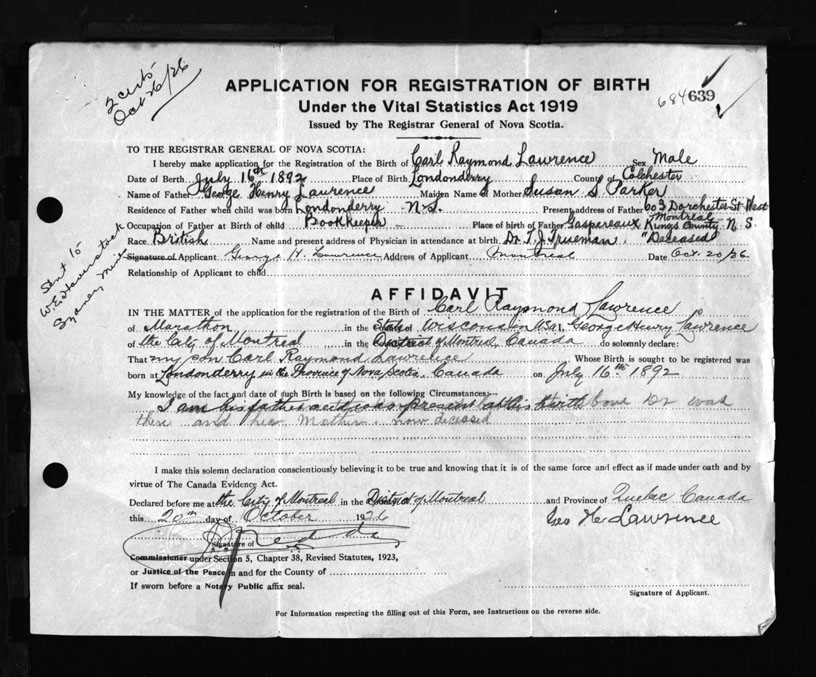 2 certs
Oct 26/26
APPLICATION FOR REGISTRATION OF BIRTH
Under the Vital Statistics Act 1919
Issued by The Registrar General of Nova Scotia.
684 639
TO THE REGISTRAR GENERAL OF NOVA SCOTIA:
I hereby make application for the Registration of the Birth of Carl Raymond Lawrence Sex Male
Date of Birth July 16th 1892 Place of Birth Londonderry County of Colchester
Name of Father George Henry Lawrence Maiden Name of Mother Susan S Parker
Residence of Father when child was born Londonderry N-S. Present address of Father 603 Dorchester St West Montreal
Occupation of Father at Birth of child Bookkeeper Place of birth of Father Gaspereaux Kings County N. S.
Race British Name and present address of Physician in attendance at birth Dr. T. J. Trueman. "Deceased"
Signature of Applicant George H. Lawrence Address of Applicant Montreal Date Oct. 20/26.
Relationship of Applicant to child
Sent to
W.E. Havenstock
Sydney Mines
AFFIDAVIT
IN THE MATTER of the application for the registration of the Birth of Carl Raymond Lawrence
of Marathon in the State of Wisconsin USA, George Henry Lawrence
of the City of Montreal in the District of Montreal, Canada do solemnly declare:
That my son Carl Raymond Lawrence Whose Birth is sought to be registered was
born at Londonderry in the Province of Nova Scotia, Canada on July 16th 1892
My knowledge of the fact and date of such Birth is based on the following Circumstances:
I am his father and was present at his birth Dr was
there and his Mother. now deceased
I make this solemn declaration conscientiously believing it to be true and knowing that it is of the same force and effect as if made under oath and by
virtue of The Canada Evidence Act.
Declared before me at the City of Montreal in the District of Montreal and Province of Quebec Canada
this 20th day of October 1926 Geo H. Lawrence
Signature of
Commissioner under Section 5, Chapter 38, Revised Statutes, 1923,
or Justice of the Peace in and for the County of
If sworn before a Notary Public affix seal.
Signature of Applicant.
For Information respecting the filling out of this Form, see Instructions on the reverse side.